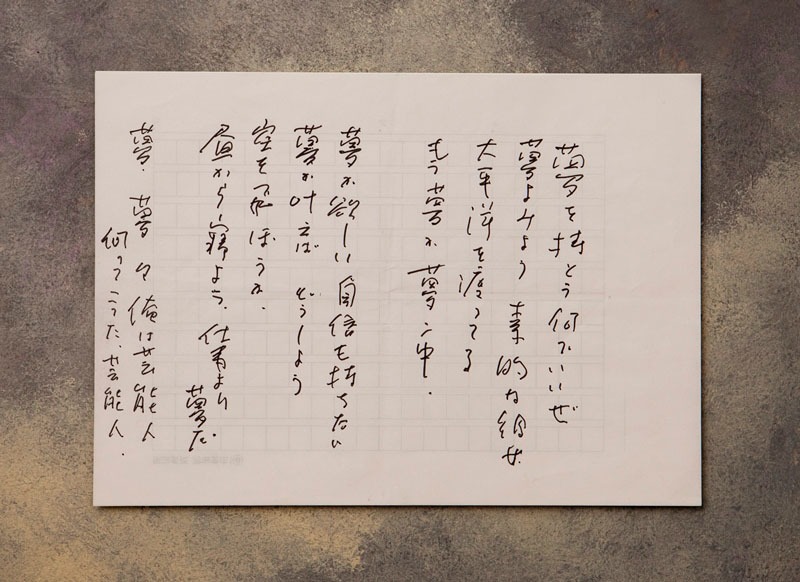 夢を持とう何でいいぜ
夢よみよう 素的な絹女
太平洋を渡ってる
もう夢か夢ン中.
夢が欲しい自信も持ちたい
夢が叶えば どうしよう
空を飛ぼうか.
昼から寝よう. 仕事より
夢だ.
夢. 夢々俺は芸能人
何って
芸能人.